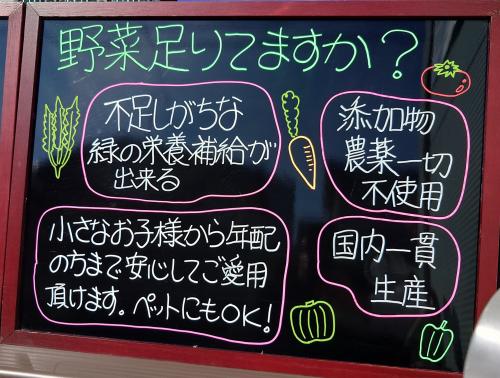 野菜足りてますか？
不足しがちな
緑の栄養補給が
出来る
添加物
農薬一切
不使用
小さなお子様から年配
の方まで安心してご愛用
頂けます。ペットにもOK!
国内一貫
生産